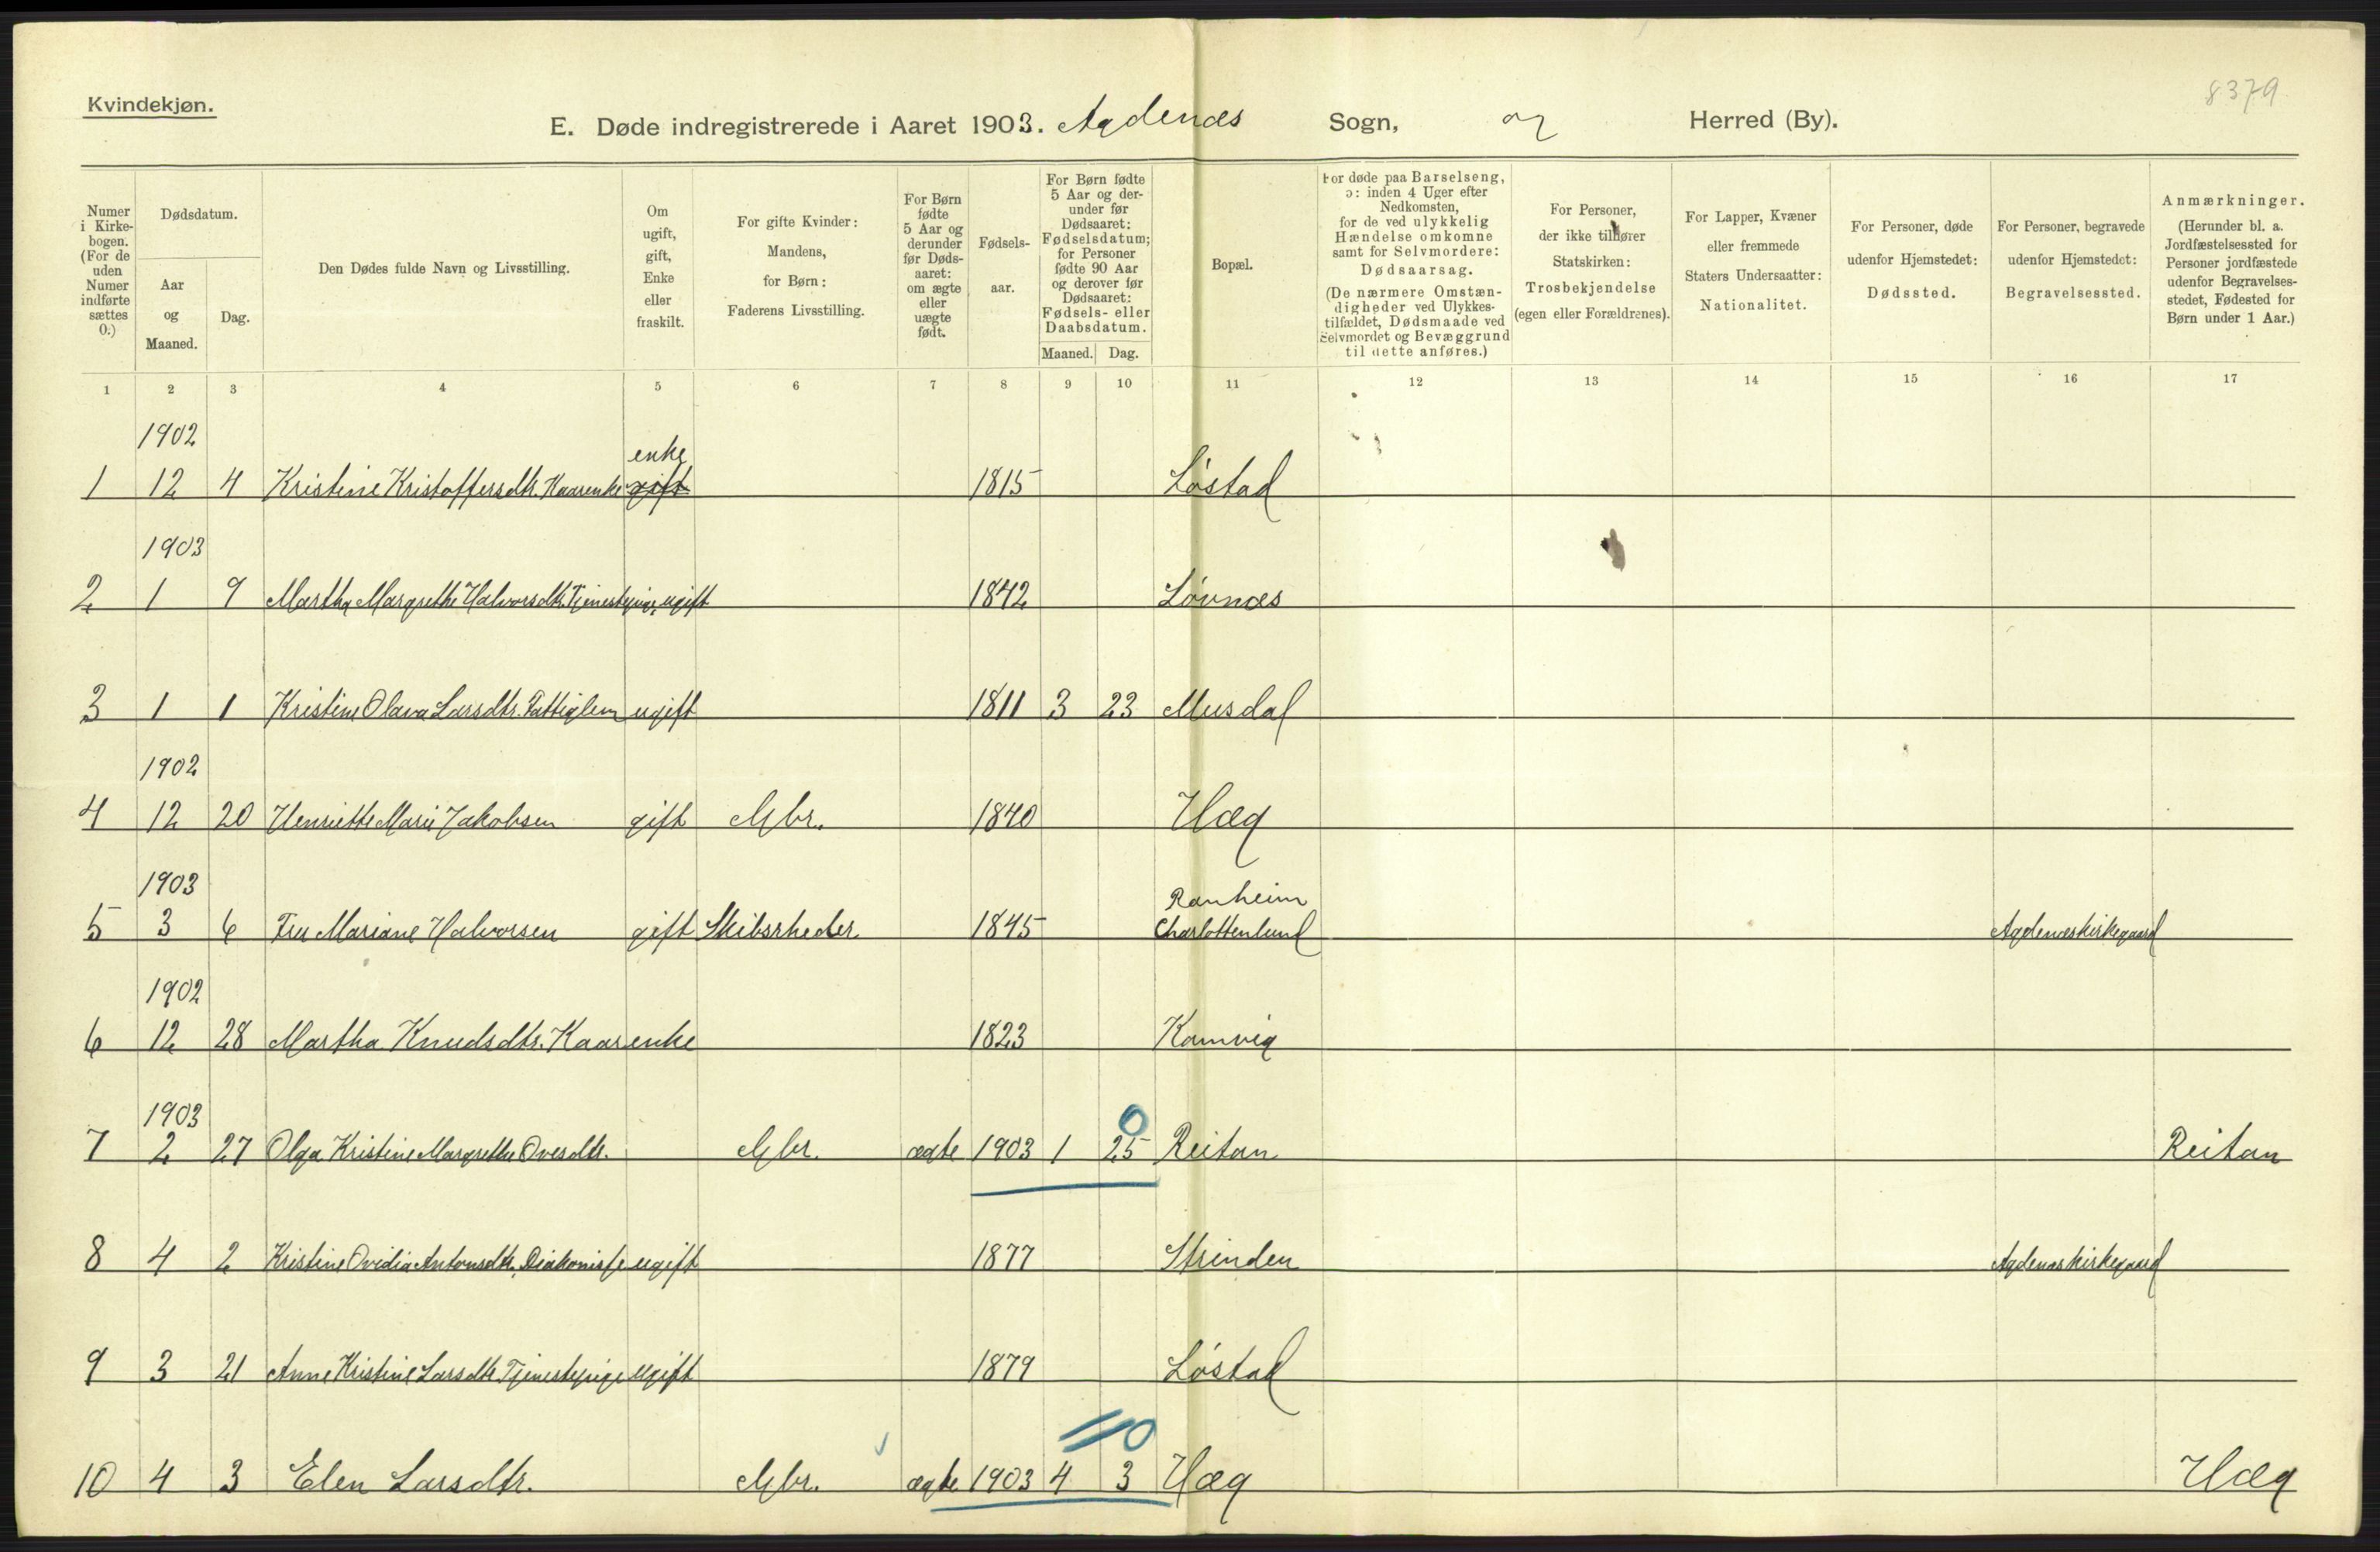 8379
Kvindekjøn.
E. Døde indregistrerede i Aaret 1903. Agdenæs Sogn, og Herred (By).
Numer i Kirkebogen. (For de uden Numer indførte sættes 0.)
Dødsdatum.
Aar og Maaned.
Dag.
Den Dødes fulde Navn og Livsstilling.
Om ugift, gift, Enke eller fraskilt.
For gifte Kvinder: Mandens, for Børn: Faderens Livsstilling.
For Børn fødte 5 Aar og derunder før Dødsaaret: om ægte eller uægte født.
Fødsels-aar.
For Børn fødte 5 Aar og derunder før Dødsaaret: Fødselsdatum; for Personer fødte 90 Aar og derover før Dødsaaret: Fødsels- eller Daabsdatum.
Maaned. Dag.
Bopæl.
For døde paa Barselseng, ɔ: inden 4 Uger efter Nedkomsten, for de ved ulykkelig Hændelse omkomne samt for Selvmordere: Dødsaarsag. (De nærmere Omstændigheder ved Ulykkestilfældet, Dødsmaade ved Selvmordet og Bevæggrund til dette anføres.)
For Personer, der ikke tilhører Statskirken: Trosbekjendelse (egen eller Forældrenes).
For Lapper, Kvæner eller fremmede Staters Undersaatter: Nationalitet.
For Personer, døde udenfor Hjemstedet: Dødssted.
For Personer, begravede udenfor Hjemstedet: Begravelsessted.
Anmærkninger. (Herunder bl. a. Jordfæstelsessted for Personer jordfæstede udenfor Begravelsesstedet, Fødested for Børn under 1 Aar.)
1 2 3 4 5 6 7 8 9 10 11 12 13 14 15 16 17
1902
enke
1 12 4 Kristine Kristoffersdtr. Kaarenke gift 1815 Løstad
1903
2 1 9 Martha Margrethe Halvorsdtr. Tjenestepige ugift 1842 Løvnæs
3 1 1 Kristine Olava Larsdtr. Fattiglem ugift 1811 3 23 Musdal
1902
4 12 20 Henriette Marie Jakobsen gift Gbr. 1840 Hæg
1903
Ranheim
5 3 6 Fru Mariane Halvorsen gift Skibsrheder 1845 Charlottenlund Agdenæskirkegaard
1902
6 12 28 Martha Knudsdtr. Kaarenke 1823 Kamvig
1903
0
7 2 27 Olga Kristine Margrethe Ovesdtr. Gbr. ægte 1903 1 25 Reitan Reitan
8 4 2 Kristine Ovidia Antonsdtr. Diakonisse ugift 1877 Strinden Agdenæskirkegaard
9 3 21 Anne Kristine Larsdtr Tjenestepige ugift 1879 Løstad
0
10 4 3 Elen Larsdtr. Gbr. ægte 1903 4 3 Hæg Hæg